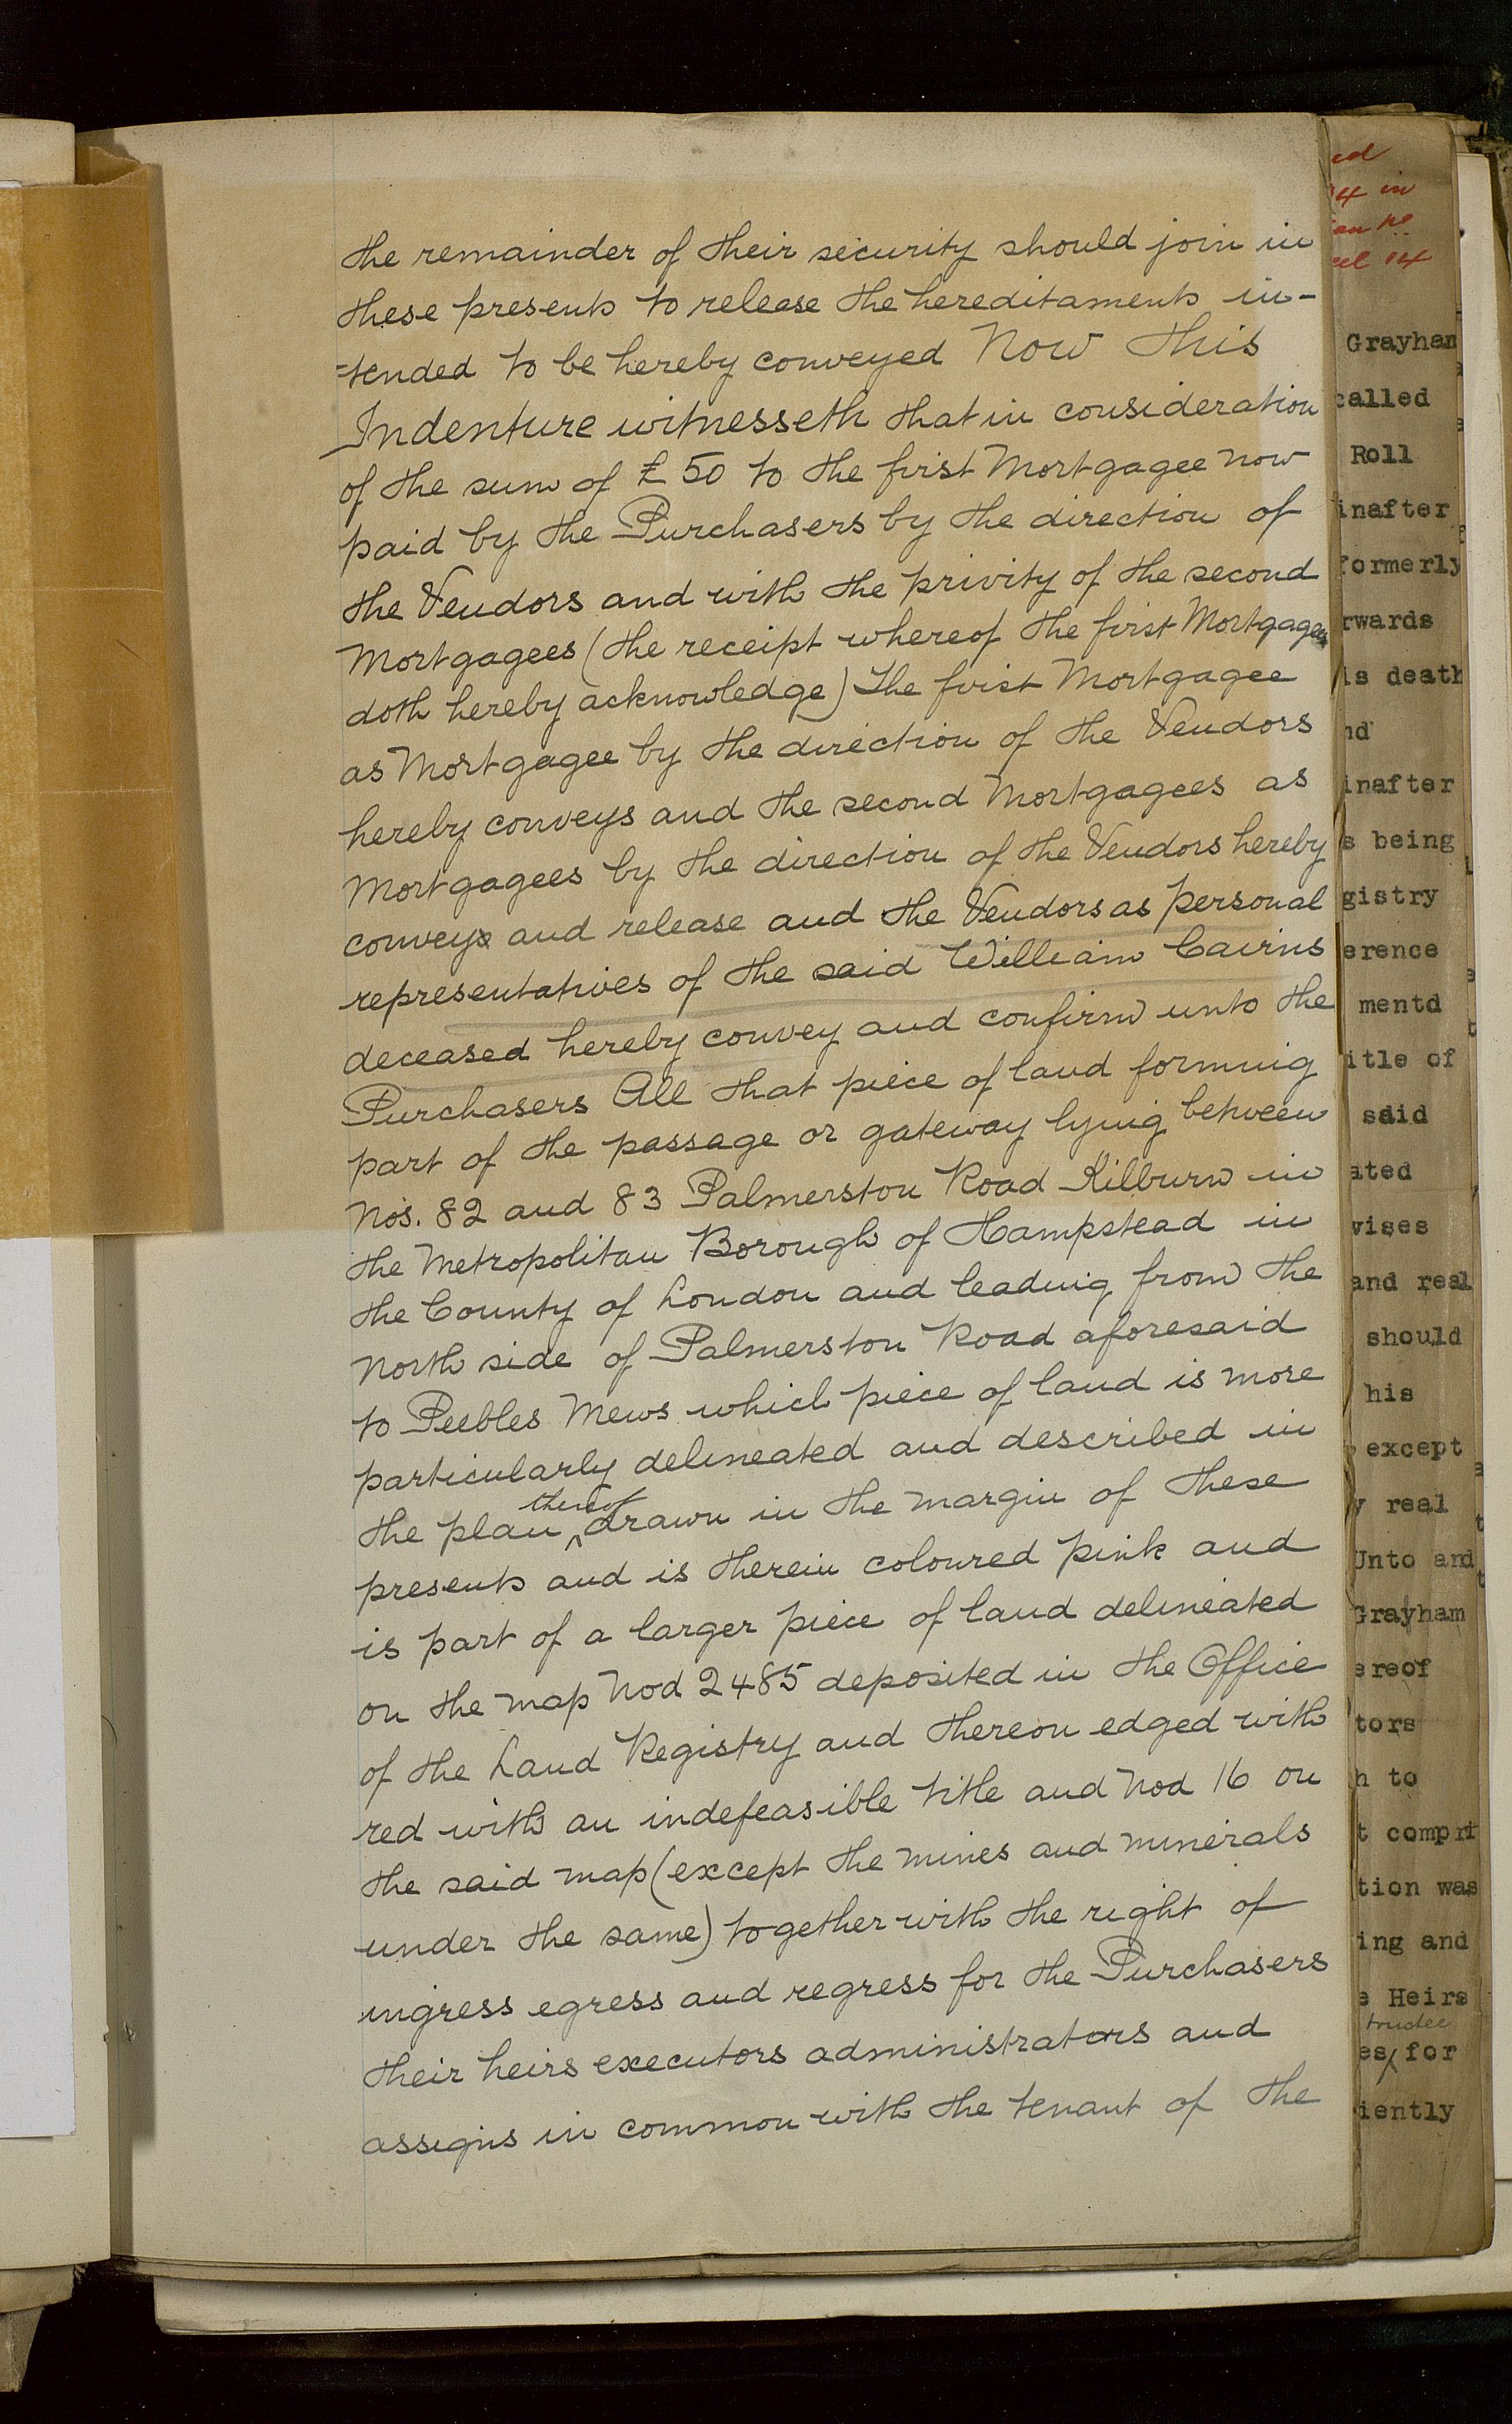 the remainder of their security should join in
these presents to release the hereditaments in-
-tended to be hereby conveyed Now This
Indenture witnesseth that in consideration
of the sum of £50 to the first Mortgagee now
paid by the Purchasers by the direction of
the Vendors and with the privity of the second
Mortgagees (the receipt whereof the first Mortgagee
doth hereby acknowledge) The first Mortgagee
as Mortgagee by the direction of the Vendors
hereby conveys and the second Mortgagees as
Mortgagees by the direction of the Vendors hereby
convey and release and the Vendors as personal
representatives of the said William Cairns
deceased hereby convey and confirm unto the
Purchasers All that piece of land forming
part of the passage or gateway lying between
Nos. 82 and 83 Palmerston Road Kilburn in
the Metropolitan Borough of Hampstead in
the County of London and leading from the
North side of Palmerston Road aforesaid
to Peebles Mews which piece of land is more
particularly delineated and described in
the plan thereof drawn in the margin of these
presents and is therein coloured pink and
is part of a larger piece of land delineated
on the map Nod 2485 deposited in the Office
of the Land Registry and thereon edged with
red with an indefeasible title and Nod 16 on
the said map (except the mines and minerals
under the same) together with the right of
ingress egress and regress for the Purchasers
their heirs executors administrators and
assigns in common with the tenant of the
ed
4 in
an No.
cel 14
Grayham
called
Roll
inafter
formerly
rwards
is death
nd
inafter
s being
gistry
erence
mentd
itle of
said
ated
vises
and real
should
his
except
y real
Unto and
Grayham
ereof
tors
h to
t compri
tion was
ing and
e Heirs
trustee
es for
iently